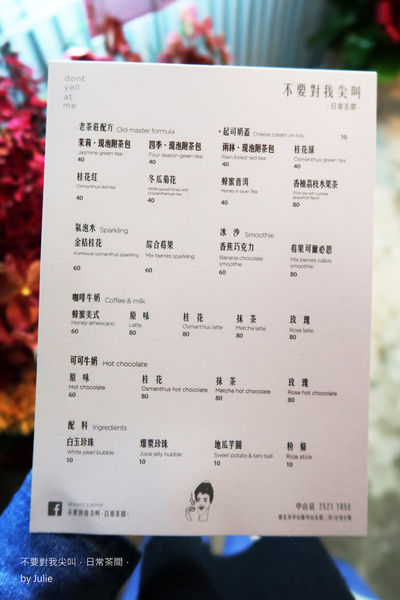 dont
yell
at
me
不要對我尖叫
·日常茶間·
老茶莊配方 Old master formula
•起司奶蓋 Cheese cream on top 10
茉莉·現泡附茶包 四季·現泡附茶包 雨林·現泡附茶包 桂花綠
Jasmine green tea Four season green tea Rain forest red tea Osmanthus green tea
40 40 40 40
桂花紅 冬瓜菊花 蜂蜜普洱 香柚荔枝水果茶
Osmanthus red tea White gourd honey with chrysanthemum tea Honey in puer tea Fruit tea with Lychee grapefruit flavor
40 40 40 80
氣泡水 Sparkling
冰 沙 Smoothie
金桔桂花 綜合莓果 香蕉巧克力 莓果可爾必思
Kumkwat osmanthus sparkling Mix berries sparkling Banana chocolate smoothie Mix berries calpis smoothie
60 60 60 80
咖啡牛奶 Coffee & milk
蜂蜜美式 原 味 桂 花 抹 茶 玫 瑰
Honey americano Latte Osmanthus latte Matcha latte Rose latte
60 80 80 80 80
可可牛奶 Hot chocolate
原 味 桂 花 抹 茶 玫 瑰
Hot chocolate Osmanthus hot chocolate Matcha hot chocolate Rose hot chocolate
60 80 80 80
配 料 Ingredients
白玉珍珠 爆漿珍珠 地瓜芋圓 粉 條
White pearl bubble Juice jelly bubble Sweet potato & taro ball Rice stick
10 10 10 10
不要對我尖叫·日常茶間·
中山店 2521 1050
不要對我尖叫·日常茶間·
by Julie